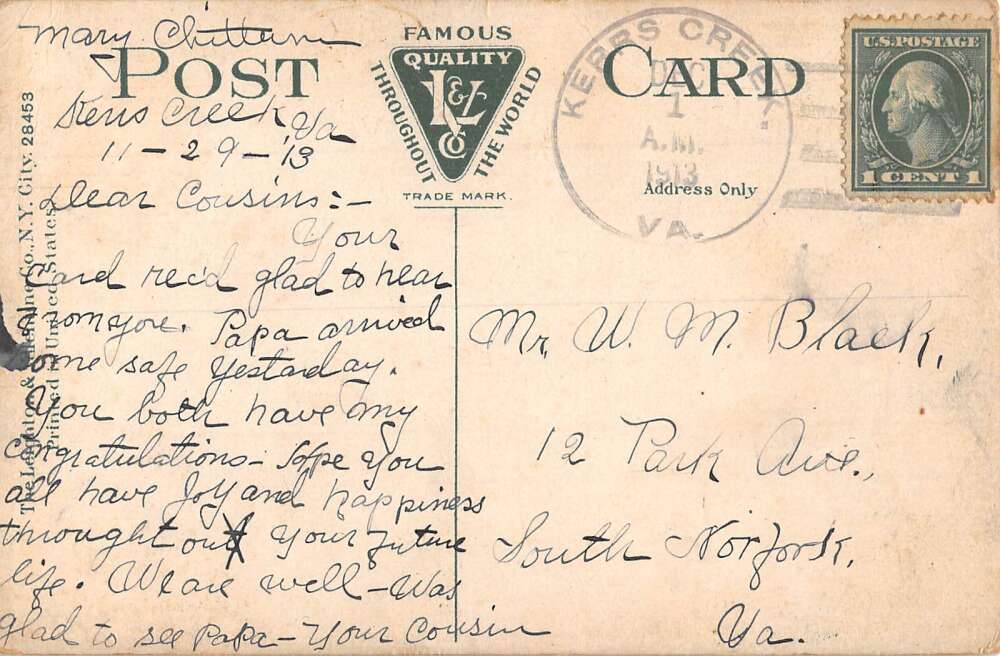 Mary Chittum
POST CARD
FAMOUS
QUALITY
L&V
CO
THROUGHOUT
THE WORLD
TRADE MARK.
KERRS CREEK,
DEC
1
A.M.
1913
VA.
U.S. POSTAGE
1 CENT 1
Address Only
The Leighton & Valentine Co., N.Y. City. 28453
Printed in United States.
Kerrs Creek Va
11-29-13
Dear Cousins:-
Your
Card rec'd glad to hear
from you. Papa arrived
ome safe yestarday.
You both have my
congratulations- Hope you
all have Joy and happiness
throught out your future
life. We are well-Was
glad to see Papa-Your Cousin
Mr. W. M. Black,
12 Park Ave.,
South Norfork,
Va.